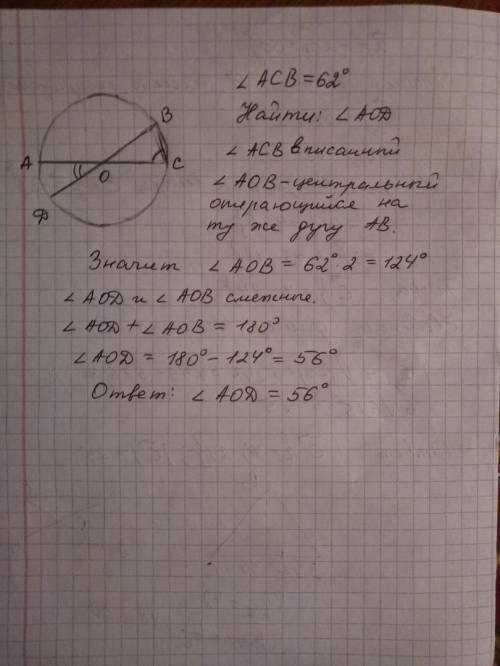 ∠ ACB = 62°
Найти: ∠ AOD
∠ ACB вписанный
∠ AOB – центральный
опирающийся на
ту же дугу AB.
B
A
C
O
D
Значит ∠ AOB = 62° · 2 = 124°
∠ AOD и ∠ AOB смежные.
∠ AOD + ∠ AOB = 180°
∠ AOD = 180° – 124° = 56°
Ответ: ∠ AOD = 56°